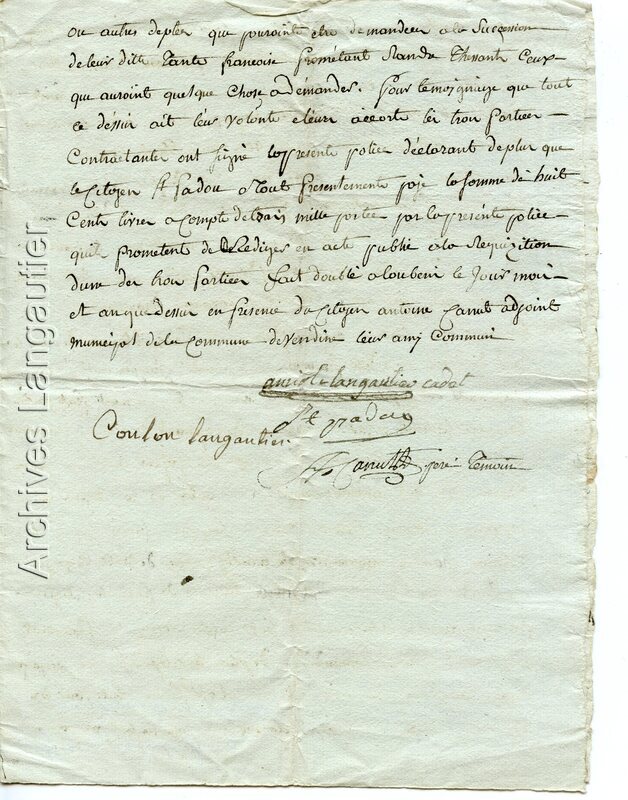 ou autres depter que pouroint etre demandeer a la Succession
de leur ditte Tante francoise prométant Randa Thessante Ceux
que auroint quelque Chose a demander. Pour temoignaize que tout
ce déssur ait léur volonte et leurs accorte lei troy partieer
Contractanter ont signé la presente police déclarant de plur que
le Citoyen St padou a Tout presentement payé la somme de huit
Cent livrer a Compte de trais mille portée par la présente police
quil prometent de Rediger en acte public a la Requizition
dune der troy partieer fait double a loubeni le Jour moir
et an que dessur en presence du Citoyen antoine Canut adjoint
municipal de la Commune de vendine leur amj Commun
amiel langautier cadet
St padou
Coulon langautier
Canut pere Temoin
Archives Langautier